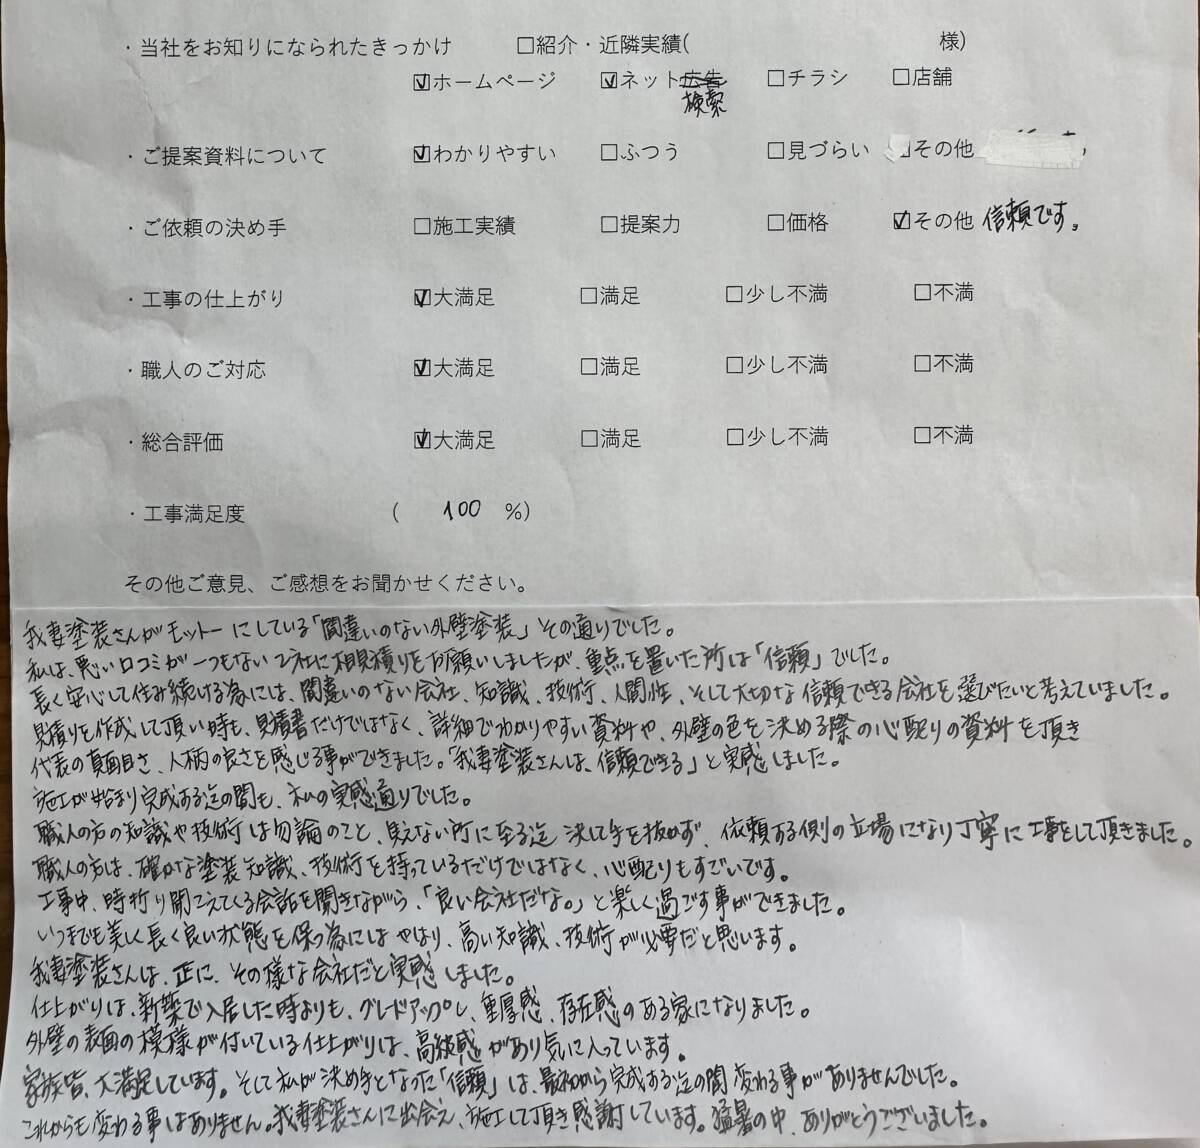 ・当社をお知りになられたきっかけ □紹介・近隣実績( 様)
☑ホームページ ☑ネット広告 □チラシ □店舗
検索
・ご提案資料について ☑わかりやすい □ふつう □見づらい □その他
・ご依頼の決め手 □施工実績 □提案力 □価格 ☑その他 信頼です。
・工事の仕上がり ☑大満足 □満足 □少し不満 □不満
・職人のご対応 ☑大満足 □満足 □少し不満 □不満
・総合評価 ☑大満足 □満足 □少し不満 □不満
・工事満足度 ( 100 %)
その他ご意見、ご感想をお聞かせください。
我妻塗装さんがモットーにしている「間違いのない外壁塗装」その通りでした。
私は、悪い口コミが一つもない2社に相見積りをお願いしましたが、重点を置いた所は「信頼」でした。
長く安心して住み続ける為には、間違いのない会社、知識、技術、人間性、そして大切な信頼できる会社を選びたいと考えていました。
見積りを作成して頂い時も、見積書だけではなく、詳細でわかりやすい資料や、外壁の色を決める際の心配りの資料を頂き
代表の真面目さ、人柄の良さを感じる事ができました。「我妻塗装さんは、信頼できる」と実感しました。
施工が始まり完成する迄の間も、私の実感通りでした。
職人の方の知識や技術は勿論のこと、見えない所に至る迄決して手を抜かず、依頼する側の立場になり丁寧に工事をして頂きました。
職人の方は、確かな塗装知識、技術を持っているだけではなく、心配りもすごいです。
工事中、時折り聞こえてくる会話を聞きながら、「良い会社だな。」と楽しく過ごす事ができました。
いつまでも美しく長く良い状態を保つ為にはやはり、高い知識、技術が必要だと思います。
我妻塗装さんは、正に、その様な会社だと実感しました。
仕上がりは、新築で入居した時よりも、グレードアップし、重厚感、存在感のある家になりました。
外壁の表面の模様が付いている仕上がりは、高級感があり気に入っています。
家族皆、大満足しています。そして私が決め手となった「信頼」は、最初から完成する迄の間変わる事がありませんでした。
これからも変わる事はありません。我妻塗装さんに出会え、施工して頂き感謝しています。猛暑の中、ありがとうございました。